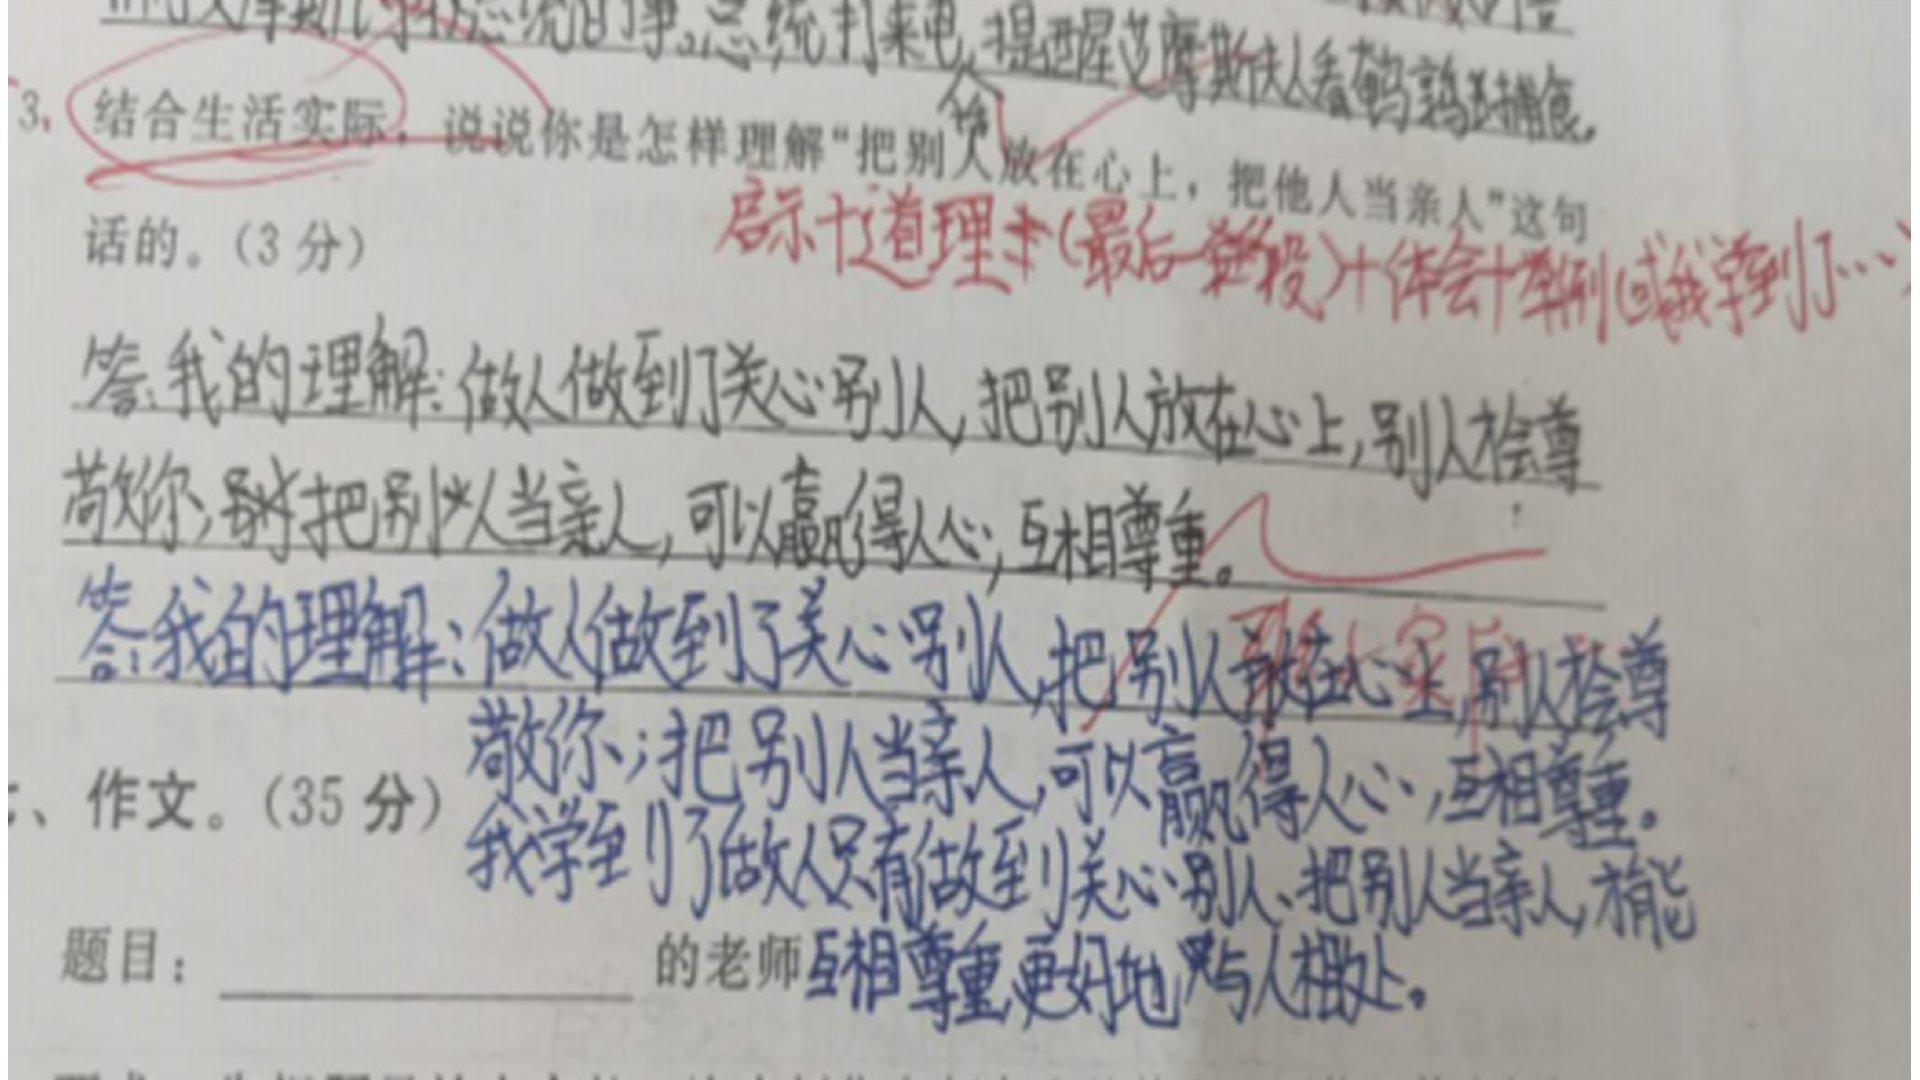 总统打来电,提醒艾摩斯夫人看鹌鹑捕食。
3、结合生活实际,说说你是怎样理解“把别人放在心上,把他人当亲人”这句
话的。(3分)
启示+道理(最后一段)+体会+举例(或我学到了…)
答:我的理解:做人做到了关心别人,把别人放在心上,别人才会尊
敬你;把别人当亲人,可以赢得人心,互相尊重。
答:我的理解:做人做到了关心别人,把别人放在心上,别人才会尊
敬你;把别人当亲人,可以赢得人心,互相尊重。
我学到了做人只有做到关心别人、把别人当亲人,才能
互相尊重,更好地与人相处。
、作文。(35分)
题目: 的老师